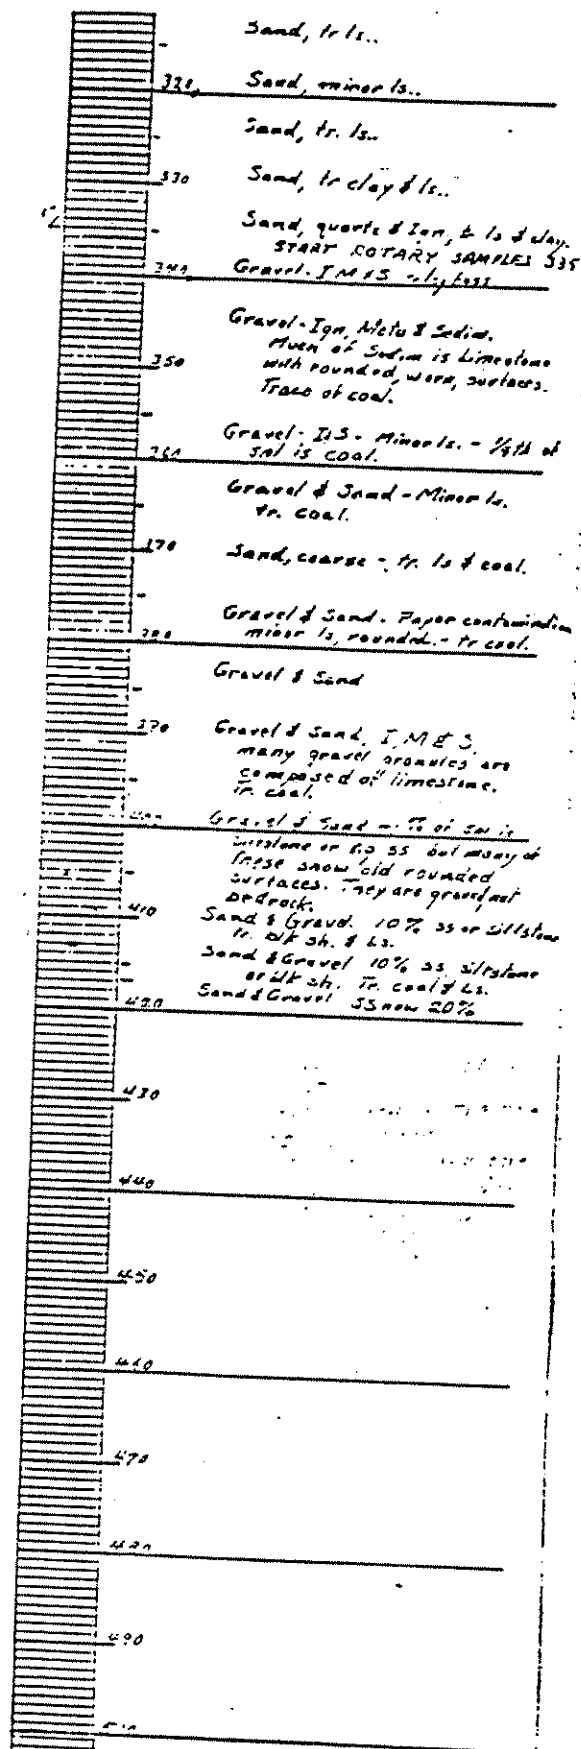 Sand, tr ls..
320 Sand, minor ls..
Sand, tr. ls..
330 Sand, tr clay & ls..
Sand, quartz & Ign, & ls & clay.
START ROTARY SAMPLES 335
340 Gravel - I M & S
Gravel - Ign, Meta & Sedim.
Much of Sedim is Limestone
350 with rounded, worn, surfaces.
Trace of coal.
Gravel - I & S - Minor ls. - 1/8th of
360 sml is coal.
Gravel & Sand - Minor ls.
tr. coal.
370 Sand, coarse - tr. ls & coal.
Gravel & Sand - Paper contamination
380 minor ls, rounded. - tr coal.
Gravel & Sand
390 Gravel & Sand, I, M & S,
many gravel granules are
composed of limestone.
Tr. coal.
400 Gravel & Sand % of is
siltstone or ss but many of
these show old rounded
surfaces. They are gravel, not
bedrock.
410 Sand & Gravel. 10% ss or siltstone
tr. blk sh. & Ls.
Sand & Gravel 10% ss, siltstone
or blk sh. Tr. coal & Ls.
420 Sand & Gravel SS now 20%
430
440
450
460
470
480
490
500